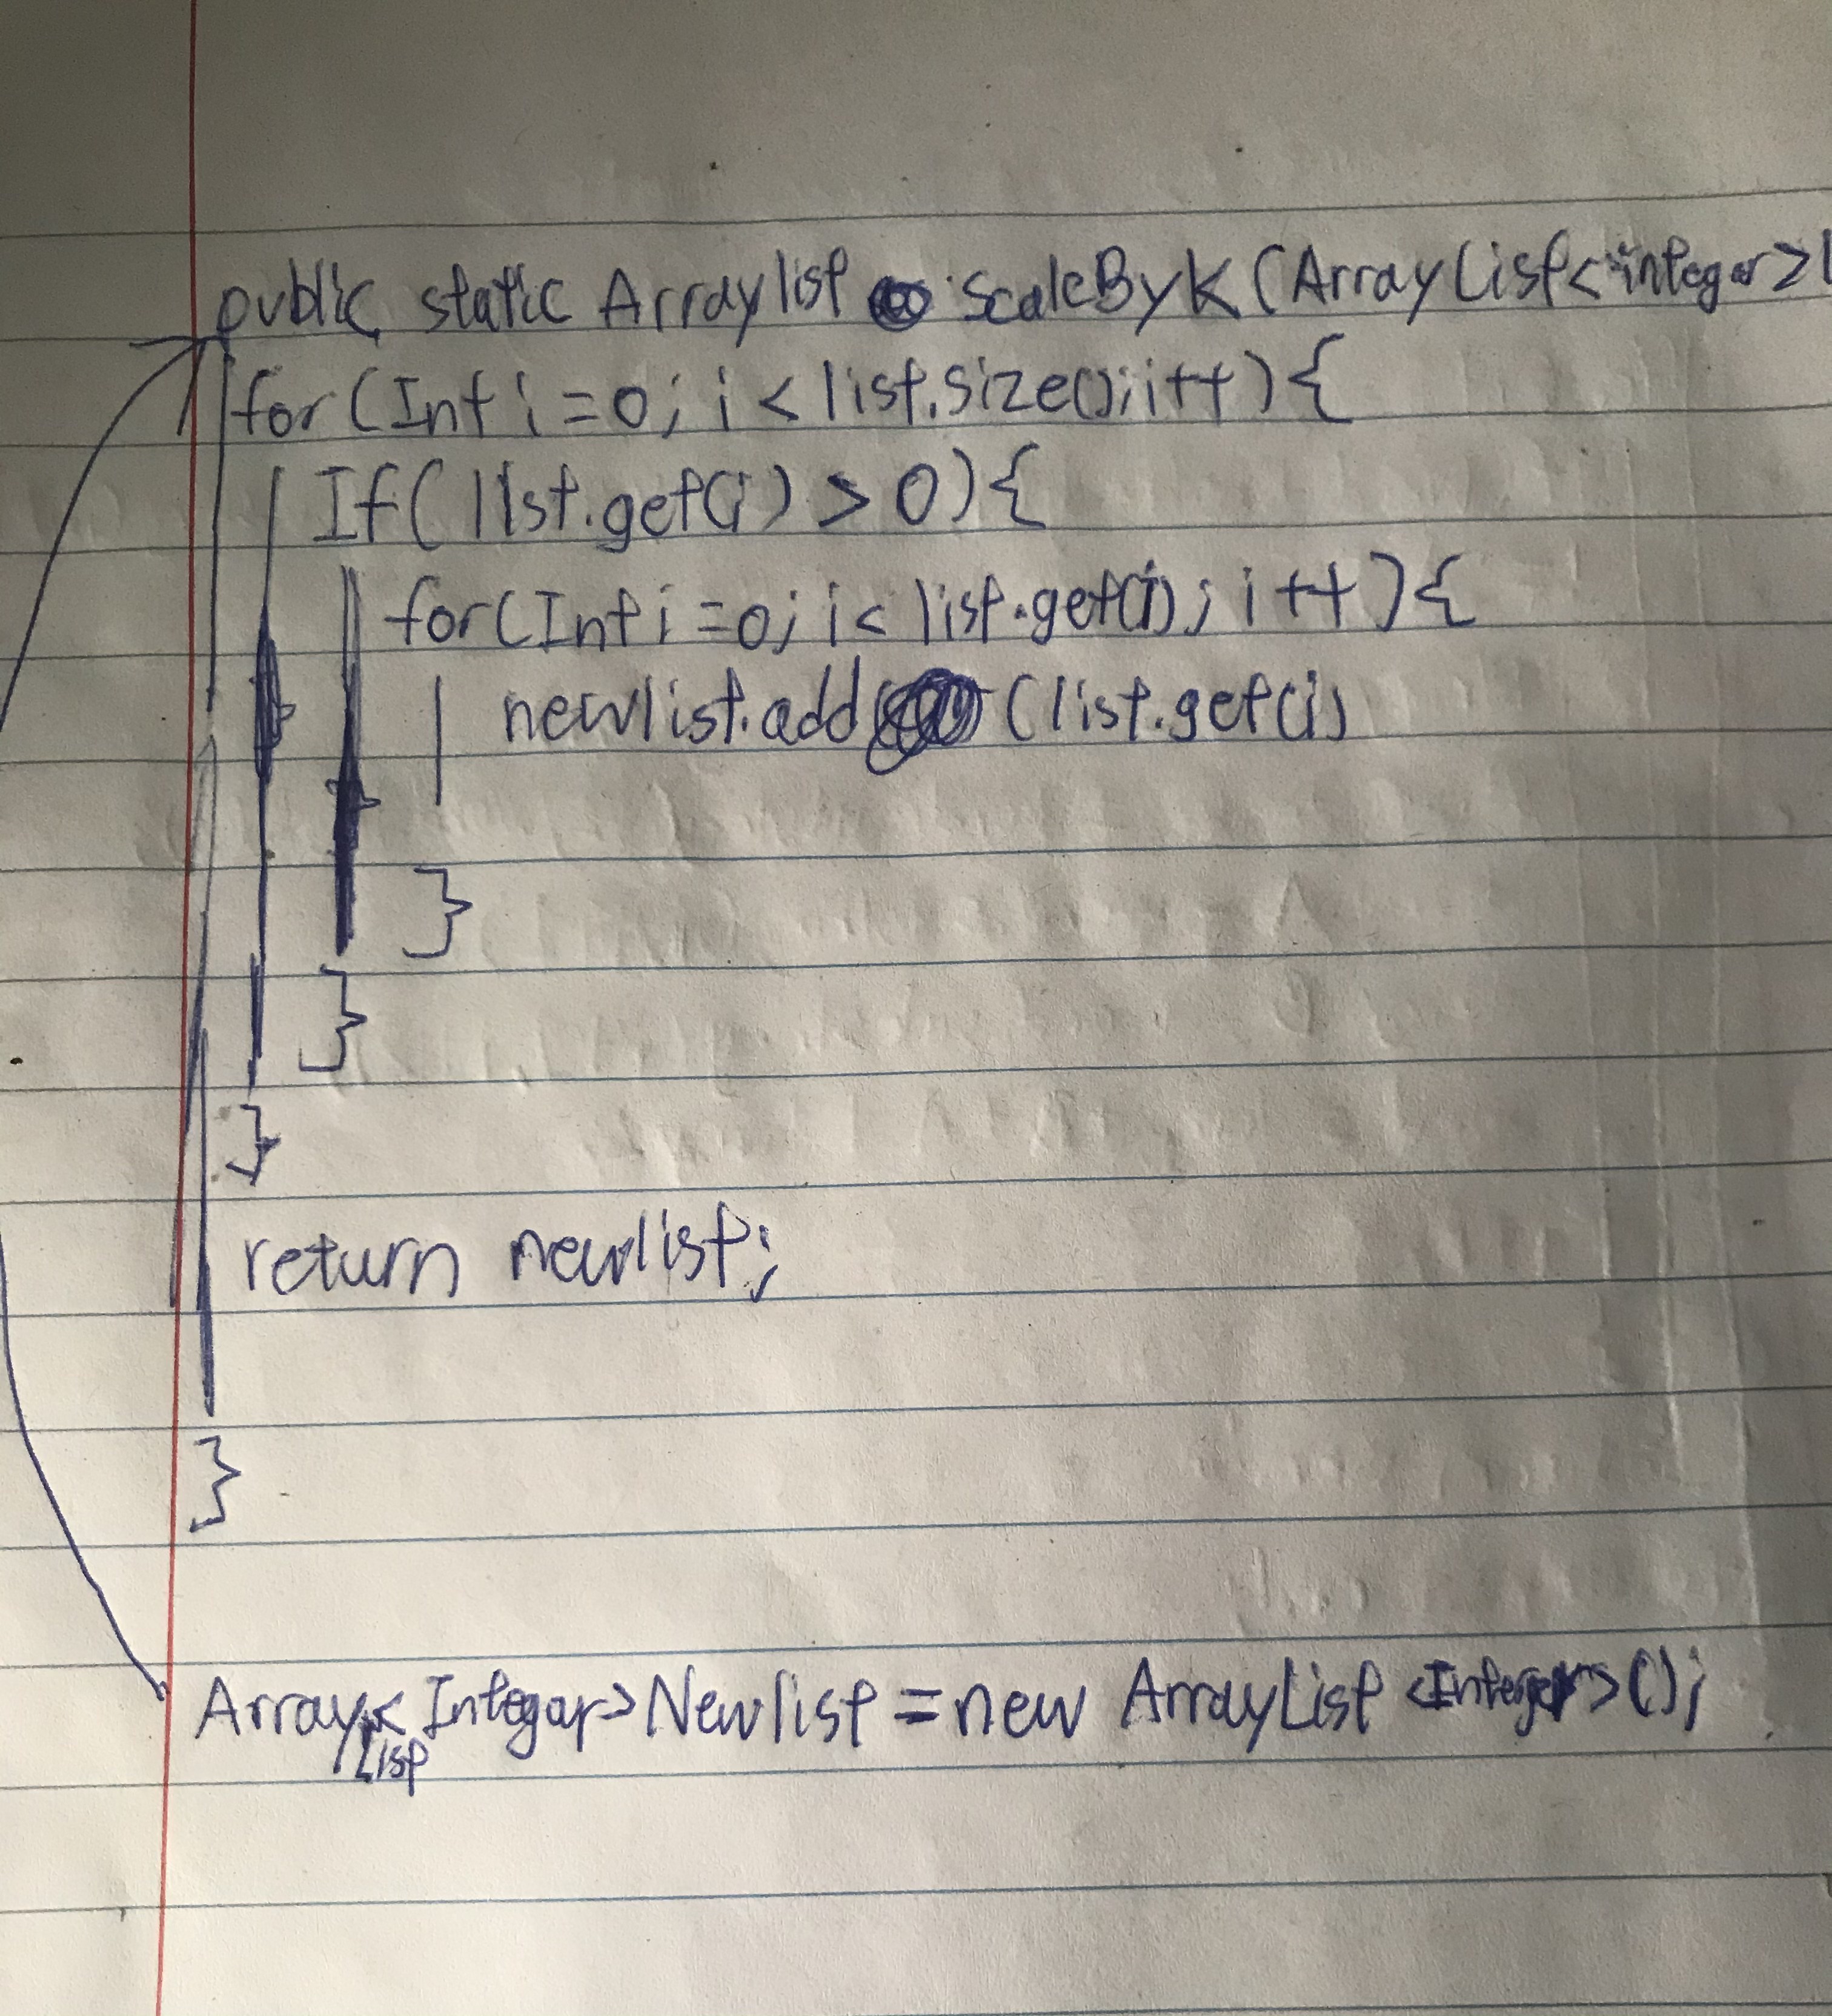 public static Arraylist ScaleByK(ArrayList<integer>l
for(Int i=0; i<list.size();i++){
If(list.get(i) > 0){
for(Int i=0; i< list.get(i); i++){
newlist.add(list.get(i)
}
}
}
return newlist;
}
ArrayList<Integer>Newlist=new ArrayList<Integer>();